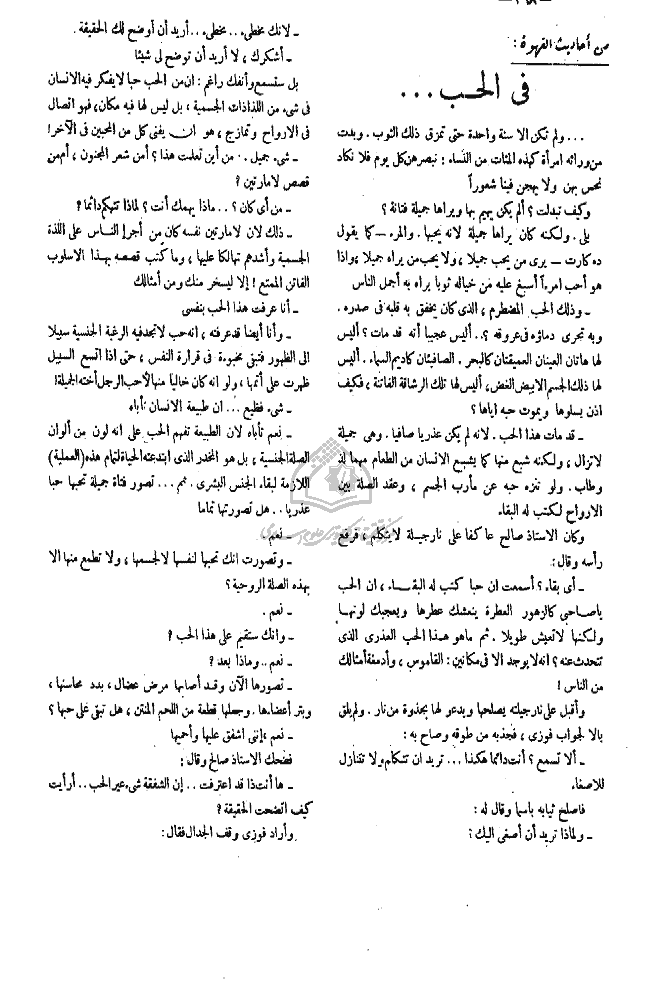 — ٣٤٨ —
من أحاديث القهوة :
فى الحب ...
... ولم تكن الا سنة واحدة حتى تمزق ذلك الثوب . وبدت
من ورائه امرأة كهذه المئات من النساء : نبصرهن كل يوم فلا نكاد
نحس بهن ولا يهجن فينا شعوراً
وكيف تبدلت ؟ ألم يكن يهيم بها ويراها جميلة فتانة ؟
بلى . ولكنه كان يراها جميلة لانه يحبها . والمرء — كما يقول
ده كارت — يرى من يحب جميلا ، ولا يحب من يراه جميلا ، واذا
هو أحب امرأ أسبغ عليه من خياله ثوبا يراه به أجمل الناس
ـ وذلك الحب المضطرم ، الذى كان يخفق به قلبه فى صدره .
وبه تجرى دماؤه فى عروقه ؟ . أليس عجيبا أنه قد مات ؟ أليس
لها هاتان العينان العميقتان كالبحر . الصافيتان كاديم السماء . أليس
لها ذلك الجسم الابيض الغض ، أليس لها تلك الرشاقة الفاتنة ، فكيف
اذن يسلوها ويموت حبه اياها ؟
ـ قد مات هذا الحب . لانه لم يكن عذريا صافيا . وهى جميلة
لا تزال ، ولكنه شبع منها كما يشبع الانسان من الطعام مهما لذ
وطاب . ولو تنزه حبه عن مآرب الجسم ، وعقد الصلة بين
الارواح لكتب له البقاء .
وكان الاستاذ صالح عاكفا على نارجيلة لا يتكلم ، فرفع
رأسه وقال :
ـ أى بقاء ؟ أسمعت ان حبا كتب له البقاء ، ان الحب
ياصاحبى كالزهور العطرة ينعشك عطرها ويعجبك لونها
ولكنها لا تعيش طويلا . ثم ماهو هذا الحب العذرى الذى
تتحدث عنه ؟ انه لا يوجد الا فى مكانين : القاموس ، وأدمغة أمثالك
من الناس !
وأقبل على نارجيلته يصلحها ويدعو لها بجذوة من نار . ولم يلق
بالا لجواب فوزى ، فجذبه من طوقه وصاح به :
ـ ألا تسمع ؟ أنت دائما هكذا ... تريد ان تتكلم ولا تتنازل
للاصغاء
فاصلح ثيابه باسما وقال له :
ـ ولماذا تريد أن أصغى اليك ؟
ـ لانك مخطىء ... مخطىء .. أريد أن أوضح لك الحقيقة .
ـ أشكرك ، لا أريد أن توضح لى شيئا
بل ستسمع وأنفك راغم : ان من الحب حبا لا يفكر فيه الانسان
فى شىء من اللذاذات الجسمية ، بل ليس لها فيه مكان ، فهو اتصال
فى الارواح وتمازج ، هو ان يفنى كل من المحبين فى الآخر !
ـ شىء جميل . من أين تعلمت هذا ؟ أمن شعر المجنون ، أم من
قصص لامارتين ؟
ـ من أى كان ؟ .. ماذا يهمك أنت ؟ لماذا تتهكم دائما ؟
ـ ذلك لان لامارتين نفسه كان من أجرإ النـاس على اللذة
الجسمية وأشدهم تهالكا عليها ، وما كتب قصصه بهذا الاسلوب
الفاتن الممتع ! إلا ليسخر منك ومن أمثالك
ـ أنا عرفت هذا الحب بنفسى
ـ وأنا أيضا قد عرفته ، انه حب لا تجد فيه الرغبة الجنسية سبيلا
الى الظهور فتبقى مخبوءة فى قرارة النفس ، حتى اذا اتسع السبيل
ظهرت على أتمها ، ولو انه كان خاليا منها لاحب الرجل أخته الجميلة !
ـ شىء فظيع ... ان طبيعة الانسان تأباه
ـ نعم تأباه لان الطبيعة تفهم الحب على انه لون من ألوان
الصلة الجنسية ، بل هو المخدر الذى ابتدعته الحياة لتمام هذه (العملية)
اللازمة لبقاء الجنس البشرى . ثم ... تصور فتاة جميلة تحبها حبا
عذريا . . هل تصورتها تماما
ـ نعم .
ـ وتصورت انك تحبها لنفسها لا لجسمها ، ولا تطمع منها الا
بهذه الصلة الروحية ؟
ـ نعم .
ـ وانك ستقيم على هذا الحب ؟
ـ نعم .. وماذا بعد ؟
ـ تصورها الآن وقد أصابها مرض عضال ، بدد محاسنها ،
وبتر أعضاءها . وجعلها قطعة من اللحم المنتن ، هل تبقى على حبها ؟
ـ نعم ، إننى اشفق عليها وأحميها
فضحك الاستاذ صالح وقال :
ـ ها أنت ذا قد اعترفت .. إن الشفقة شىء غير الحب .. أرأيت
كيف اتضحت الحقيقة ؟
وأراد فوزى وقف الجدال فقال :